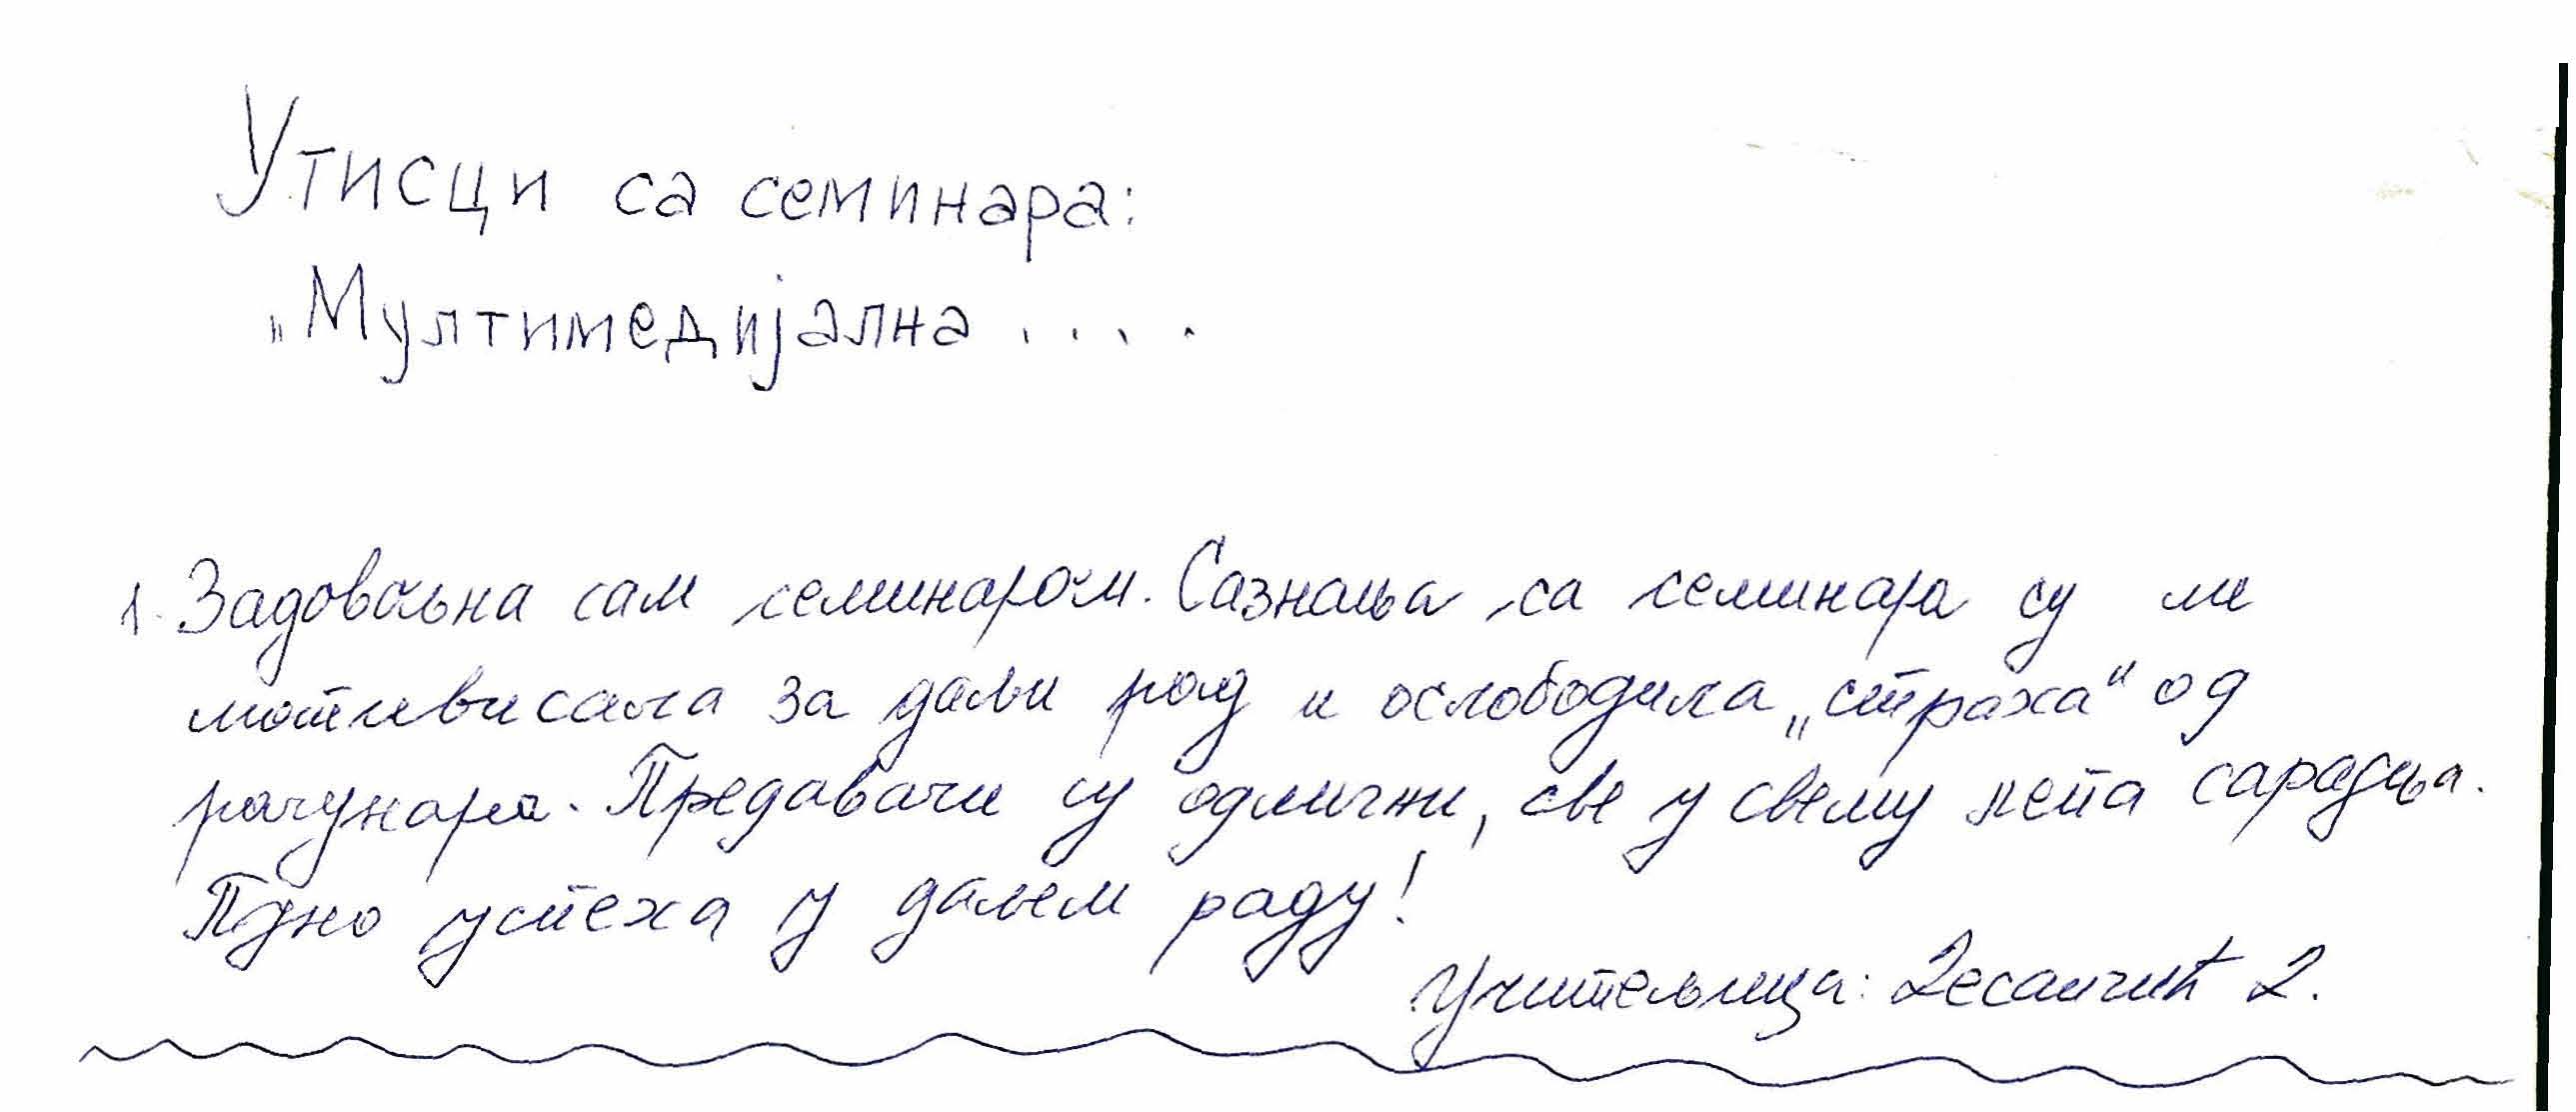 Утисци са семинара:
„Мултимедијална ....
1. Задовољна сам семинаром. Сазнања са семинара су ме
мотивисала за даљи рад и ослободила „страха“ од
рачунара. Предавачи су одлични, све у свему лепа сарадња.
Пуно успеха у даљем раду!
Учитељица: